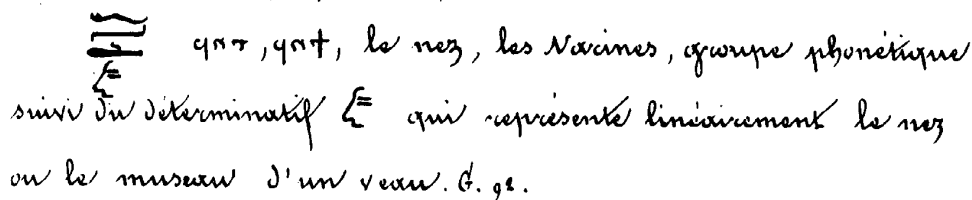 le nez, les Narines, groupe phonétique
suivi du déterminatif qui représente linéairement le nez
ou le museau d'un veau. G. 92.